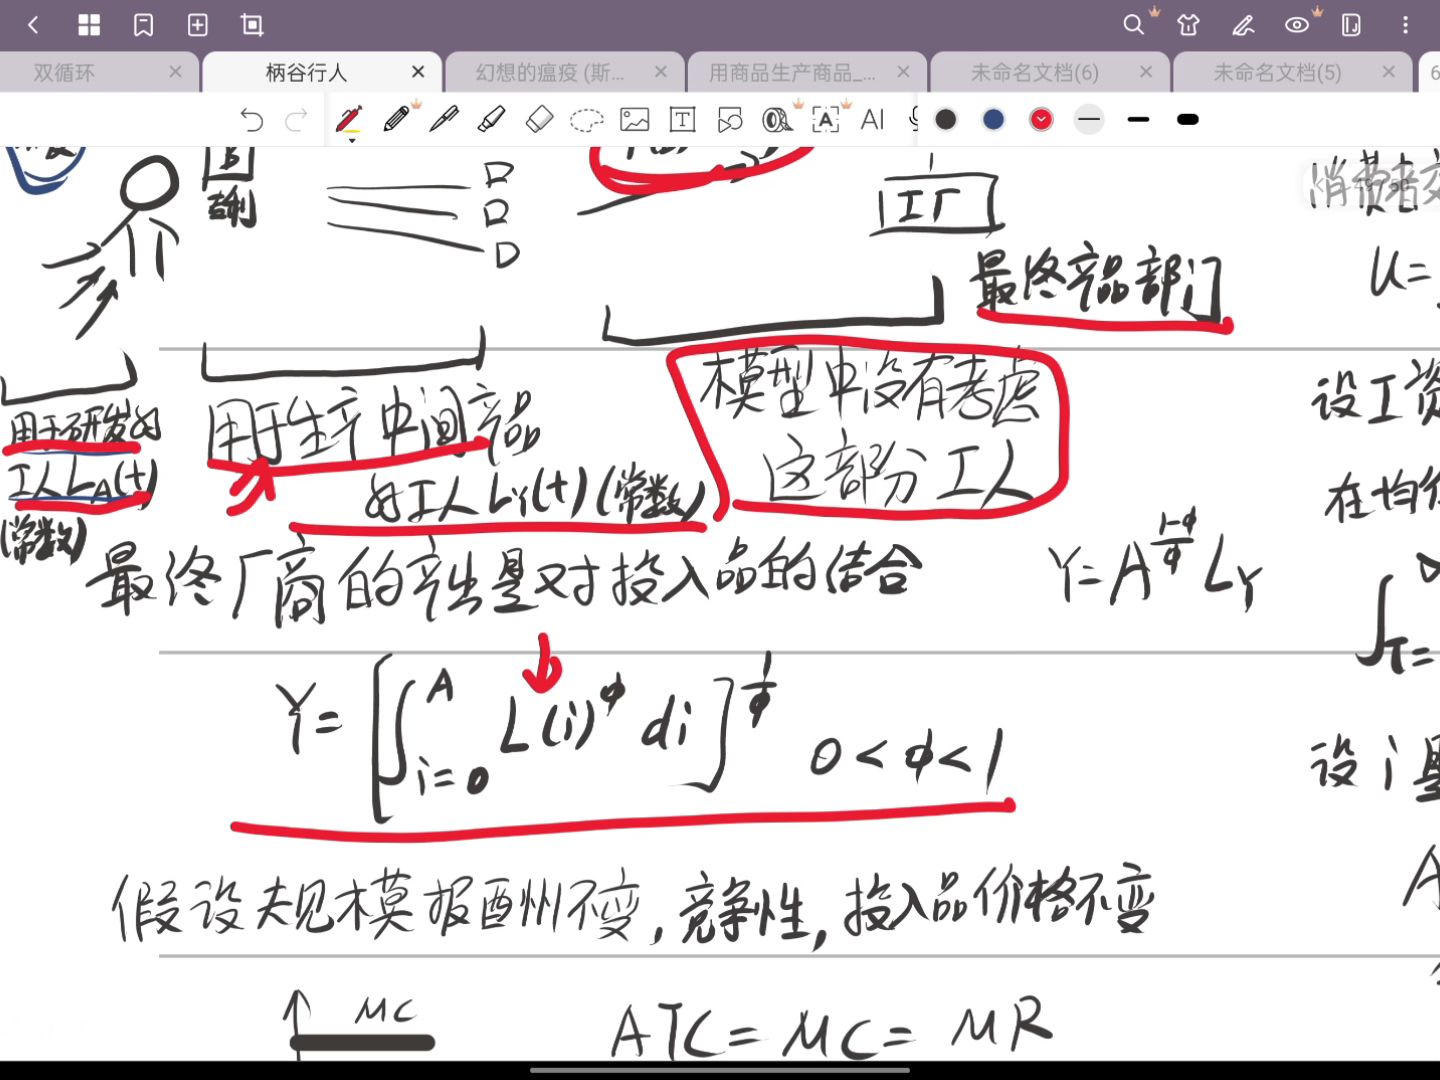 双循环
柄谷行人
幻想的瘟疫 (斯...
用商品生产商品_...
未命名文档(6)
未命名文档(5)
6
AI
专利
工厂
消费者
U=
最终产品部门
模型中没有考虑
这部分工人
用于研发的
工人 LA(t)
(常数)
用于生产中间产品
的工人 LY(t) (常数)
设工资
在均
最终厂商的产出是对投入品的结合
Y=A^{\frac{1-φ}{φ}} L_Y
Y=[∫_{i=0}^{A} L(i)^φ di]^{\frac{1}{φ}}
0<φ<1
设 i 是
假设规模报酬不变,竞争性,投入品价格不变
MC
ATC=MC=MR